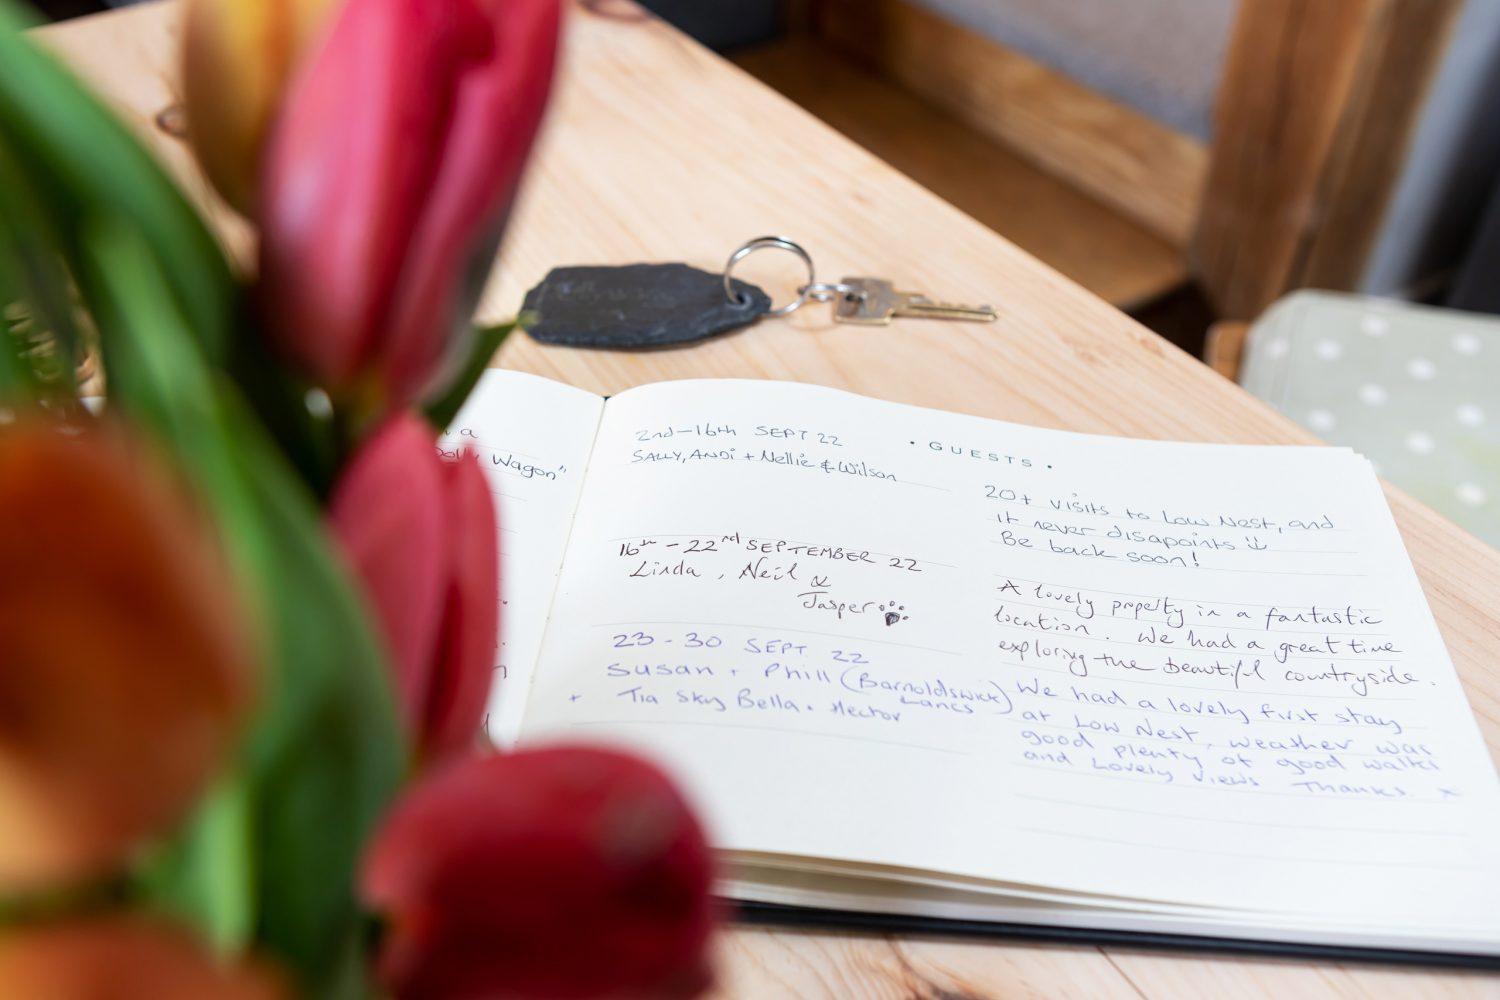 a
Wagon"
2nd-16th SEPT 22
SALLY, ANDi + Nellie & Wilson
• GUESTS •
20+ visits to Low Nest, and
it never disapoints
Be back soon!
16th - 22nd SEPTEMBER 22
Linda, Neil &
Jasper
A lovely property in a fantastic
location. We had a great time
exploring the beautiful countryside.
23 - 30 SEPT. 22
Susan + Phill (Barnoldswick)
Lancs
+ Tia Sky Bella + Hector
We had a lovely first stay
at Low Nest, weather was
good plenty of good walks
and Lovely views Thanks. x